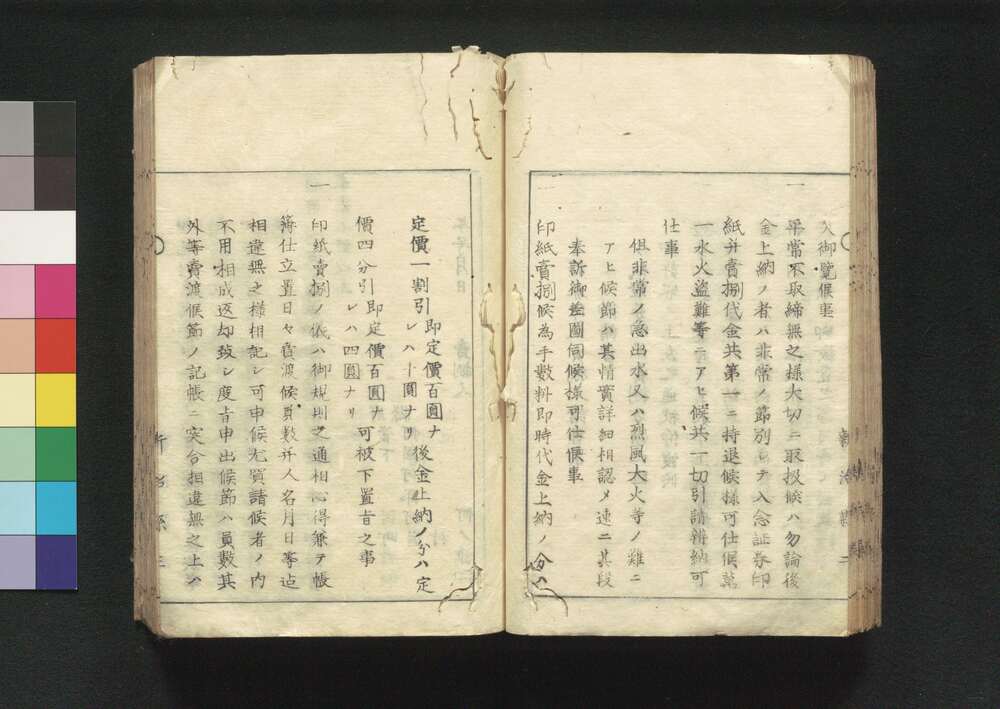 入御覧候事
一
平常不取締無之様大切ニ取扱候ハ勿論後
金上納ノ者ハ非常ノ節別シテ入念証券印
紙并賣捌代金共第一ニ持退候様可仕候萬
一水火盗難等ニアヒ候共一切引請辨納可
仕事
但非常ノ急出水又ハ烈風大火等ノ難ニ
アヒ候節ハ其情實詳細相認メ速ニ其段
奉訴御差圖伺候様可仕候事
一
印紙賣捌候為手數料即時代金上納ノ分ハ
定價一割引即定價百圓ナレハ十圓ナリ後金上納ノ分ハ定
價四分引即定價百圓ナレハ四圓ナリ可被下置旨之事
一
印紙賣捌ノ儀ハ御規則之通相心得兼テ帳
簿仕立置日々賣渡候員數并人名月日等迠
相違無之様相記シ可申候尤買請候者ノ内
不用相成返却致シ度旨申出候節ハ員數其
外等賣渡候節ノ記帳ニ突合相違無之上ハ